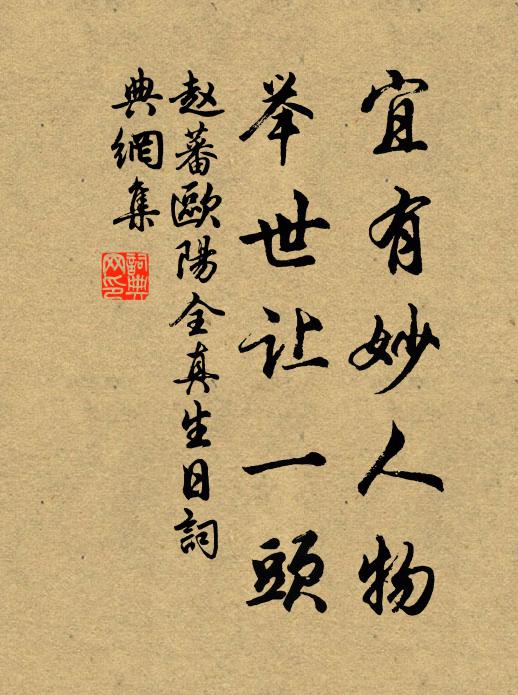 宜有妙人物
举世让一頭
赵蕃歐陽全真生日詞
典網集
詞典网印